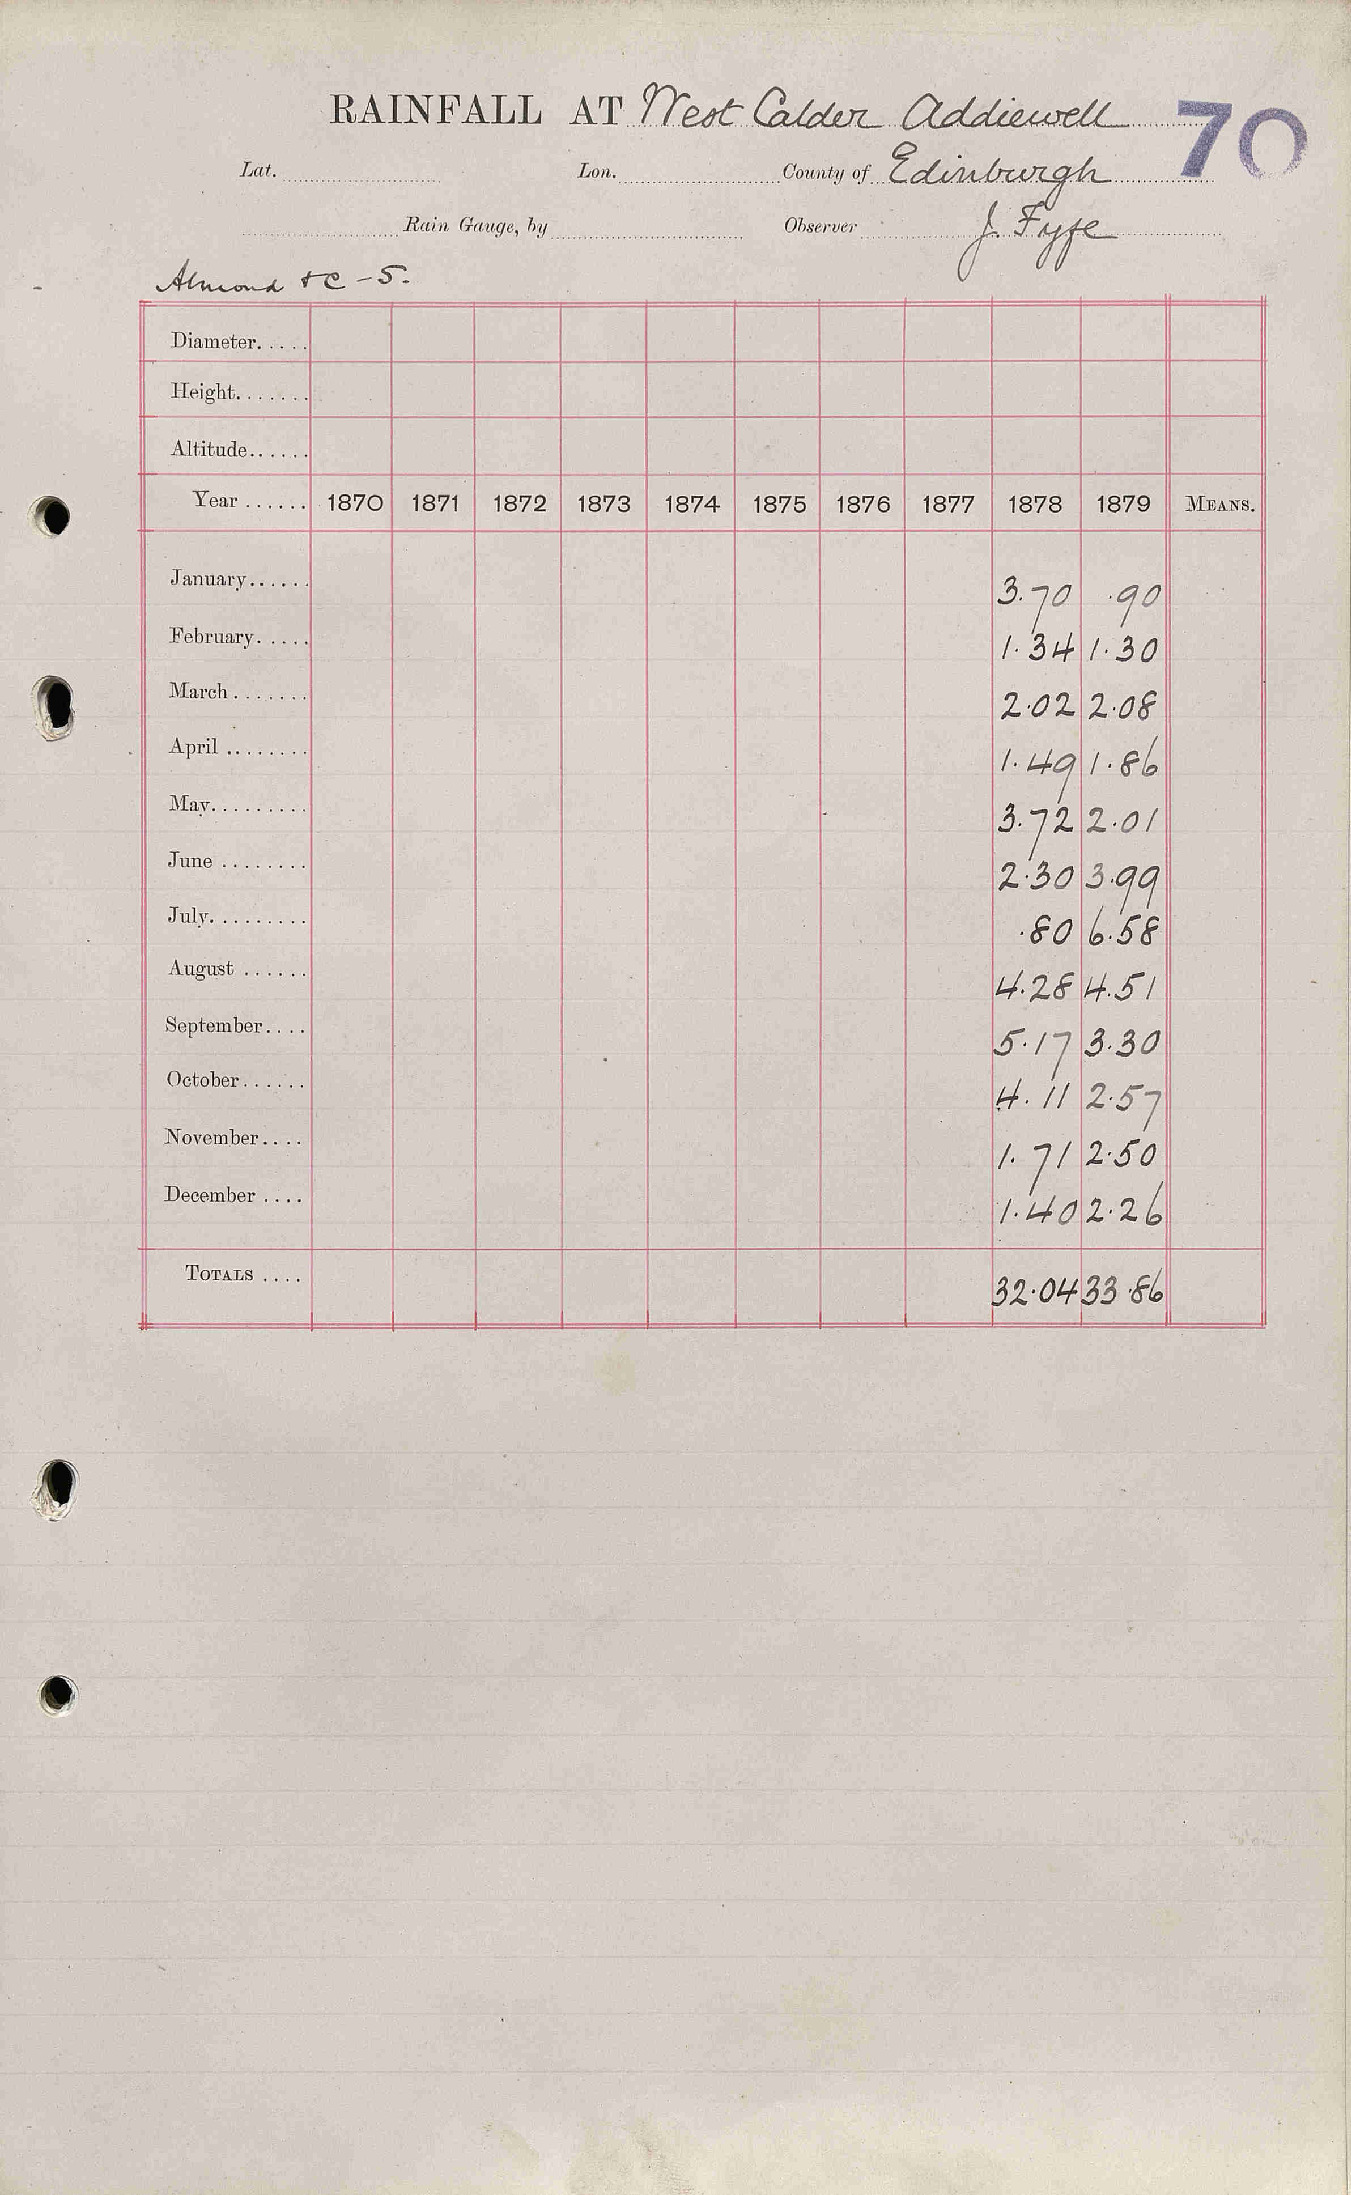 RAINFALL AT West Calder Addiewell 70
Lat. Lon. County of Edinburgh
Rain Gauge, by Observer J. Fyfe
Almond &C - 5.
Diameter.....
Height.......
Altitude......
Year ...... 1870 1871 1872 1873 1874 1875 1876 1877 1878 1879 MEANS.
January...... 3.70 .90
February..... 1.34 1.30
March....... 2.02 2.08
April ........ 1.49 1.86
May......... 3.72 2.01
June ........ 2.30 3.99
July......... .80 6.58
August ...... 4.28 4.51
September.... 5.17 3.30
October...... 4.11 2.57
November.... 1.71 2.50
December .... 1.40 2.26
TOTALS .... 32.04 33.86